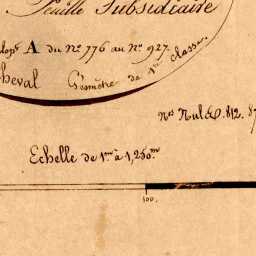 Feuille Subsidiaire
A du Nº 776 au Nº 927.
cheval Géomètre de 1re classe.
Nos Nuls 812. 8
Echelle de 1m à 1,250m
100.